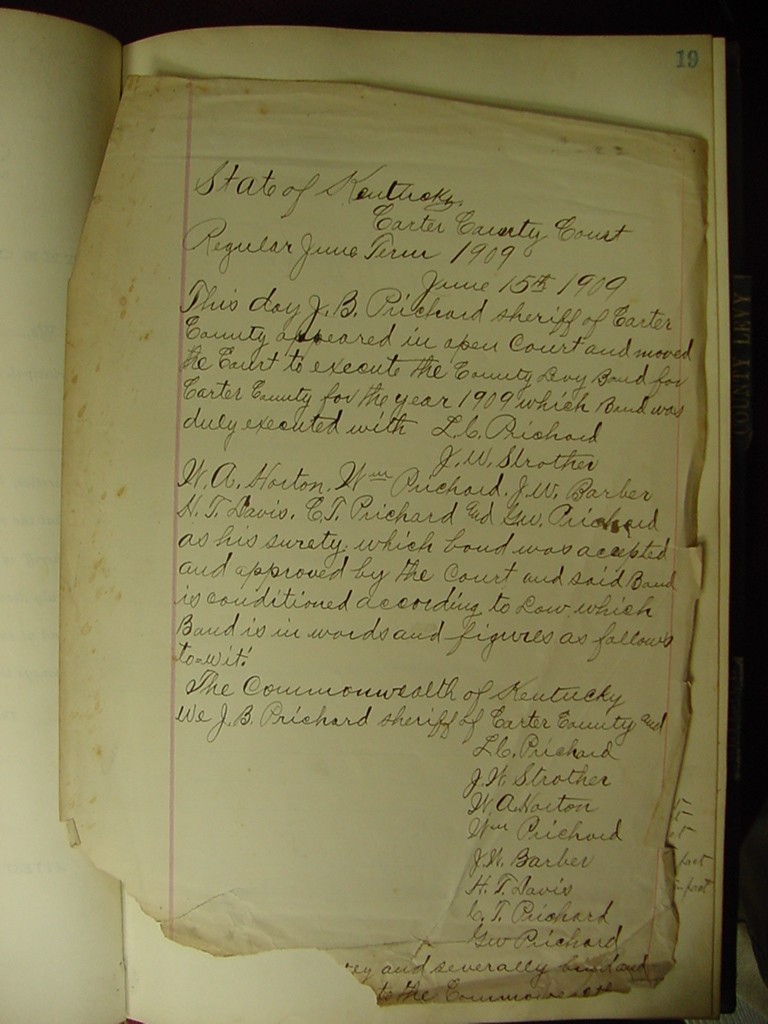 19
State of Kentucky
Carter County Court
Regular June Term 1909
June 15th 1909
This day J. B. Prichard sheriff of Carter
County appeared in open Court and moved
the Court to execute the County Levy Bond for
Carter County for the year 1909 which Bond was
duly executed with L. C. Prichard
J. W. Strother
W. A. Horton. Wm Prichard. J. W. Barber
H. T. Davis. C. T. Prichard and Geo. Prichard
as his surety. which bond was accepted
and approved by the Court and said Bond
is conditioned according to Law which
Bond is in words and figures as follows
to-wit:
The Commonwealth of Kentucky
We J. B. Prichard sheriff of Carter County and
L. C. Prichard
J. W. Strother
W. A. Horton
Wm Prichard
J. W. Barber
H. T. Davis
C. T. Prichard
Geo Prichard
and severally bind
to the Commonwealth
COUNTY LEVY